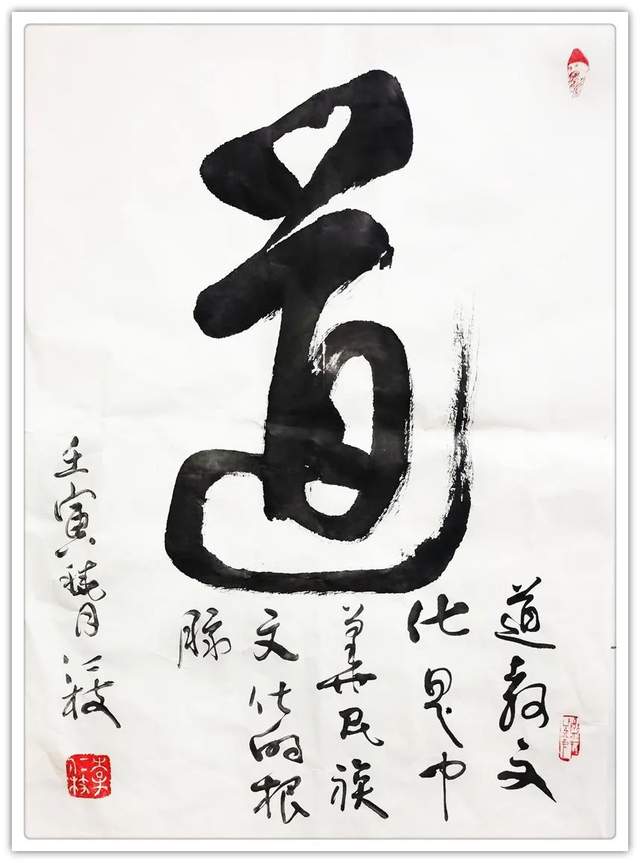 道
道教文
化是中
華民族
文化的根
脉
壬寅桃月仁枝
李仁枝